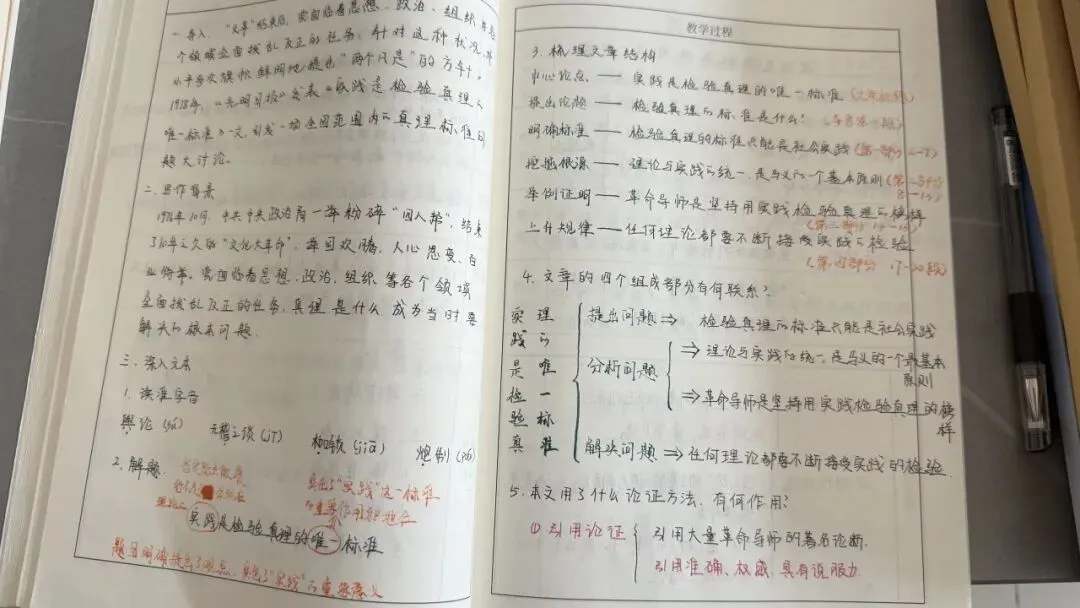 一. 导入. "文革"结束后, 党面临着思想、政治、组织等各
个领域全面拨乱反正的任务. 针对这种状况,
小平多次旗帜鲜明地提出"两个凡是"的方针。
1978年, 《光明日报》发表《实践是检验真理的
唯一标准》一文, 引发一场全国范围内的真理标准问
题大讨论.
二. 写作背景
1976年10月, 中共中央政治局一举粉碎"四人帮", 结束
了10年之久的"文化大革命", 举国欢腾, 人心思变、百
业待举. 党面临着思想、政治、组织等各个领域
全面拨乱反正的任务, 真理是什么成为当时要
解决的根本问题.
三. 深入文本
1. 读准字音
舆论 (yú) 无稽之谈 (jī) 枷锁 (jiā) 炮制 (páo)
2. 解题
突出了"实践"这一标准
的重要作用和地位
实践是检验真理的唯一标准
题目明确提出了观点, 突出了"实践"的重要意义
教学过程
3. 梳理文章结构
中心论点 —— 实践是检验真理的唯一标准
提出论题 —— 检验真理的标准是什么?
明确标准 —— 检验真理的标准只能是社会实践 (第一部分 2-7)
挖掘根源 —— 理论与实践的统一, 是马义的一个基本原则 (第二部分
8-13)
举例证明 —— 革命导师是坚持用实践检验真理的榜样
(第三部分 14-16)
上升规律 —— 任何理论都要不断接受实践的检验
(第四部分 17-20段)
4. 文章的四个组成部分有何联系?
实践是检验真理的唯一标准
提出问题 ⇒ 检验真理的标准只能是社会实践
分析问题 ⇒ 理论与实践的统一, 是马义的一个最基本
原则
⇒ 革命导师是坚持用实践检验真理的榜
样
解决问题 ⇒ 任何理论都要不断接受实践的检验.
5. 本文用了什么论证方法, 有何作用?
① 引用论证 引用大量革命导师的著名论断.
引用准确、权威, 具有说服力.